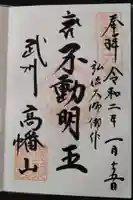 奉拝
令和二年一月十五日
弘法大師御作
不動明王
武州
高幡山